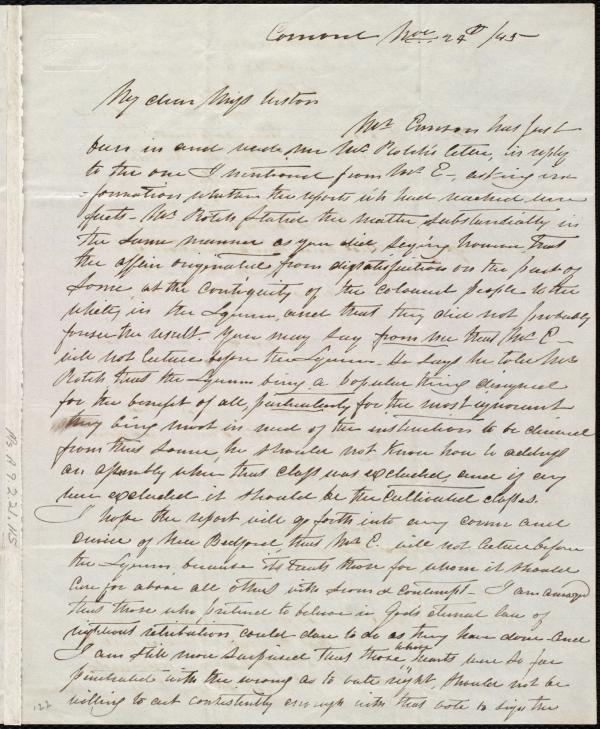 Concord Nov. 24th /45
My dear Miss Weston
Mr. Emerson has just
been in and read me Mr. Rotch's letter, in reply
to the one I mentioned from Mr E-, asking in-
=formation whether the reports wh had reached were
facts - Mr. Rotch stated the matter substantially in
the same manner as you did, saying however that
the affair originated from dissatisfaction on the part of
some at the contiguity of the coloured people to the
whites, in the Lyceum, and that they did not probably
foresee the result. You may say from me that Mr. E-
will not lecture before the Lyceum. He says he told Mr.
Rotch that the Lyceum being a popular thing designed
for the benefit of all, particularly for the most ignorant
they being most in need of the instruction to be derived
from this source, he should not know how to address
an assembly when this class was excluded, and if any
were excluded it should be the cultivated classes.
I hope the report will go forth into any corner and
of New Bedford, that Mr. E. will not lecture before
the Lyceum because it treats those for whom it should
care for above all others with scorn & contempt - I am amazed
that those who pretend to believe in God's eternal law of
righteous retribution, could dare to do as they have done - and
I am still more surprised that those whose hearts were so far
penetrated with the wrong as to vote right, should not be
willing to act consistently enough with that vote to sign the
Ms A 9.2.21.115
122